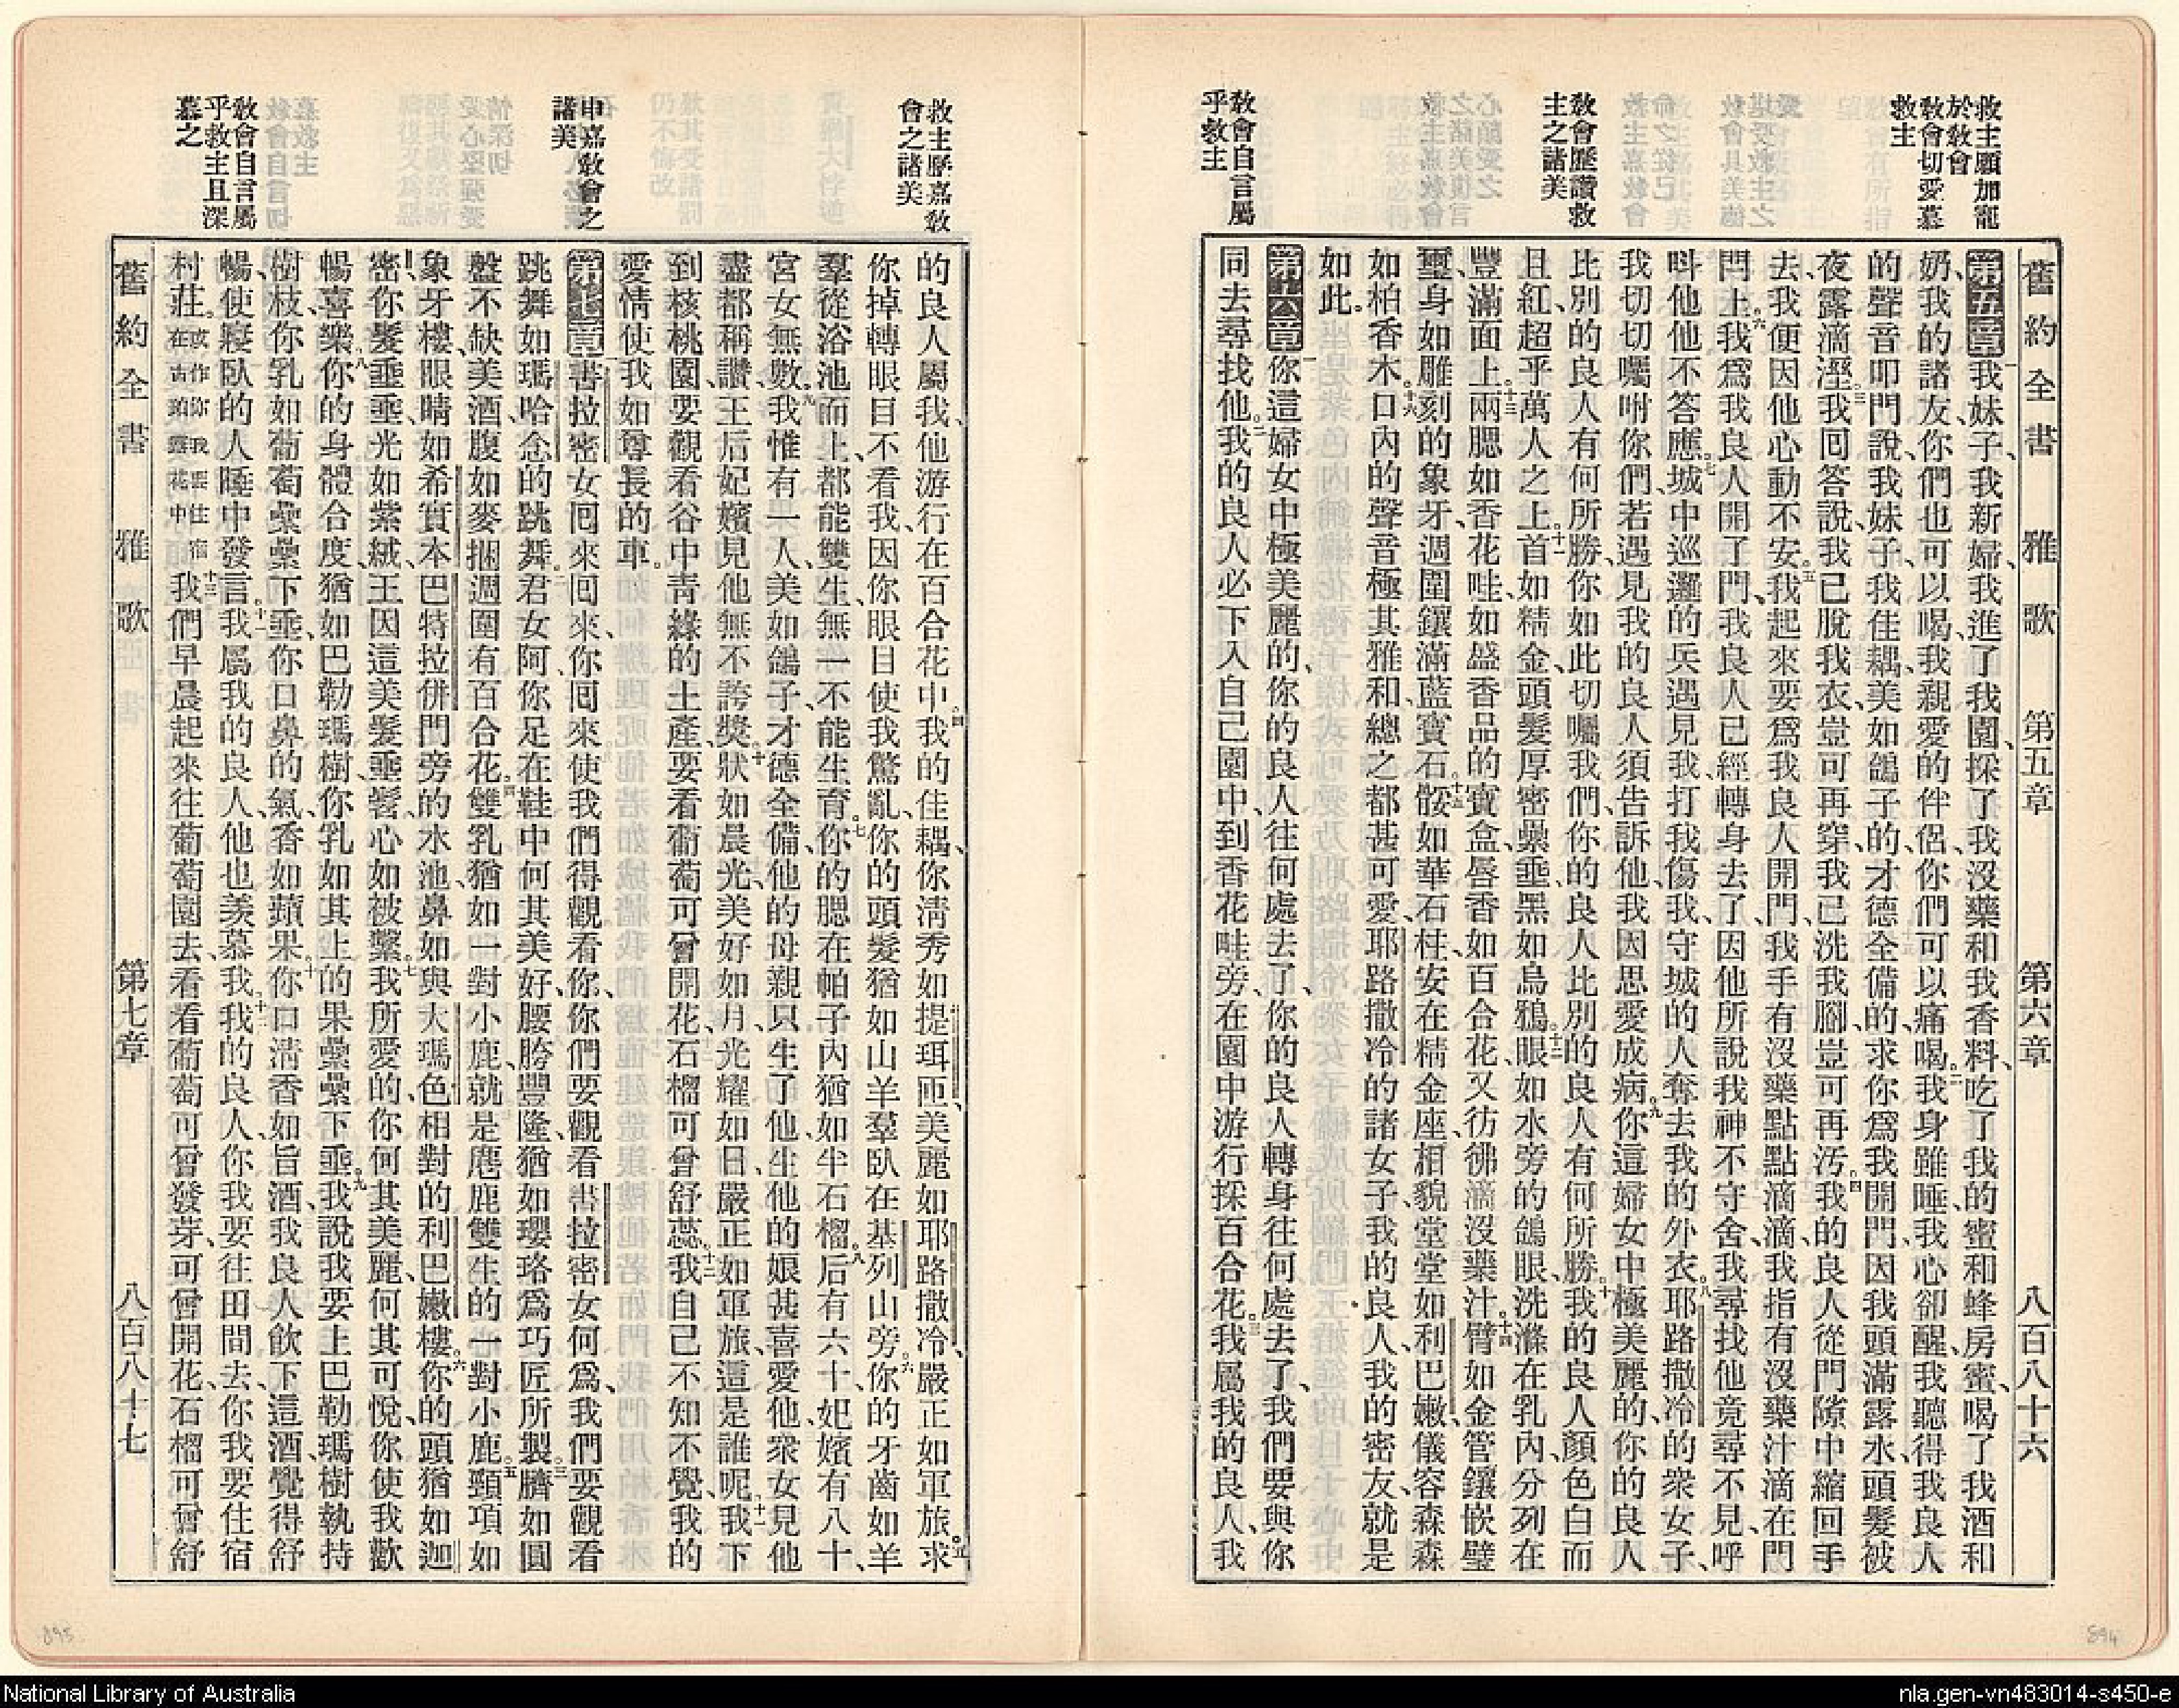 救主願加寵
於教會
教會切愛慕
救主
教會歷讚救
主之諸美
教會自言屬
乎救主
舊約全書 雅歌 第五章 第六章 八百八十六
第五章 一我妹子、我新婦、我進了我園、採了我沒藥和我香料、吃了我的蜜和蜂房蜜、喝了我酒和
奶、我的諸友、你們也可以喝、我親愛的伴侶、你們可以痛喝。二我身雖睡、我心卻醒、我聽得我良人
的聲音叩門說、我妹子、我佳耦、美如鴿子的、才德全備的、求你爲我開門、因我頭滿露水、頭髮被
夜露滴溼。三我回答說、我已脫我衣、豈可再穿、我已洗我腳、豈可再汚。四我的良人從門隙中縮回手
去、我便因他心動不安。五我起來要爲我良人開門、我手有沒藥點點滴滴、我指有沒藥汁滴在門
閂上。六我爲我良人開了門、我良人已經轉身去了、因他所說、我神不守舍、我尋找他、竟尋不見、呼
呌他、他不答應。七城中巡邏的兵遇見我、打我傷我、守城的人奪去我的外衣。八耶路撒冷的衆女子、
我切切囑咐你們、若遇見我的良人、須告訴他、我因思愛成病。九你這婦女中極美麗的、你的良人
比別的良人有何所勝、你如此切囑我們、你的良人比別的良人有何所勝。十我的良人顏色白而
且紅、超乎萬人之上。十一首如精金、頭髮厚密纍垂、黑如烏鴉。十二眼如水旁的鴿眼、洗滌在乳內、分列在
豐滿面上。十三兩腮如香花畦、如盛香品的寶盒、唇香如百合花、又彷彿滴沒藥汁。十四臂如金管鑲嵌璧
璽、身如雕刻的象牙、週圍鑲滿藍寶石。十五骽如華石柱、安在精金座、相貌堂堂如利巴嫩、儀容森森
如柏香木。十六口內的聲音極其雅和、總之都甚可愛、耶路撒冷的諸女子、我的良人、我的密友、就是
如此。
第六章 一你這婦女中極美麗的、你的良人往何處去了、你的良人轉身往何處去了、我們要與你
同去尋找他。二我的良人必下入自己園中、到香花畦旁、在園中游行、採百合花。三我屬我的良人、我
救主歷嘉教
會之諸美
申嘉教會之
諸美
教會自言屬
乎救主且深
慕之
的良人屬我、他游行在百合花中。四我的佳耦、你淸秀如提珥匝、美麗如耶路撒冷、嚴正如軍旅。五求
你掉轉眼目不看我、因你眼目使我驚亂、你的頭髮猶如山羊羣臥在基列山旁。六你的牙齒如羊
羣從浴池而上、都能雙生、無一不能生育。七你的腮在帕子內猶如半石榴。八后有六十、妃嬪有八十、
宮女無數。九我惟有一人、美如鴿子、才德全備、他的母親只生了他、生他的娘甚喜愛他、衆女見他
盡都稱讚、王后妃嬪見他無不誇獎。十狀如晨光、美好如月、光耀如日、嚴正如軍旅、這是誰呢。十一我下
到核桃園、要觀看谷中靑綠的土產、要看葡萄可曾開花、石榴可曾舒蕊。十二我自己不知不覺、我的
愛情使我如尊長的車。
第七章 一書拉密女、回來回來、你回來使我們得觀看你、你們要觀看書拉密女何爲、我們要觀看
跳舞如瑪哈念的跳舞。二君女阿、你足在鞋中何其美好、腰胯豐隆、猶如瓔珞爲巧匠所製。三臍如圓
盤、不缺美酒、腹如麥捆、週圍有百合花。四雙乳猶如一對小鹿、就是麀鹿雙生的一對小鹿。五頸項如
象牙樓、眼睛如希實本巴特拉併門旁的水池、鼻如與大瑪色相對的利巴嫩樓。六你的頭猶如迦
密、你髮垂垂、光如紫絨、王因這美髮垂髫、心如被繫。七我所愛的、你何其美麗、何其可悅、你使我歡
暢喜樂。八你的身體合度、猶如巴勒瑪樹、你乳如其上的果纍纍下垂。九我說我要上巴勒瑪樹執持
樹枝、你乳如葡萄纍纍下垂、你口鼻的氣香如蘋果。十你口淸香如旨酒、我良人飲下這酒、覺得舒
暢、使寢臥的人睡中發言。十一我屬我的良人、他也羨慕我。十二我的良人、你我要往田間去、你我要住宿
村莊。或作你我要住宿在古珀露花中十三我們早晨起來往葡萄園去、看看葡萄可曾發芽、可曾開花、石榴可曾舒
舊約全書 雅歌 第七章 八百八十七
895
894
National Library of Australia
nla.gen-vn483014-s450-e